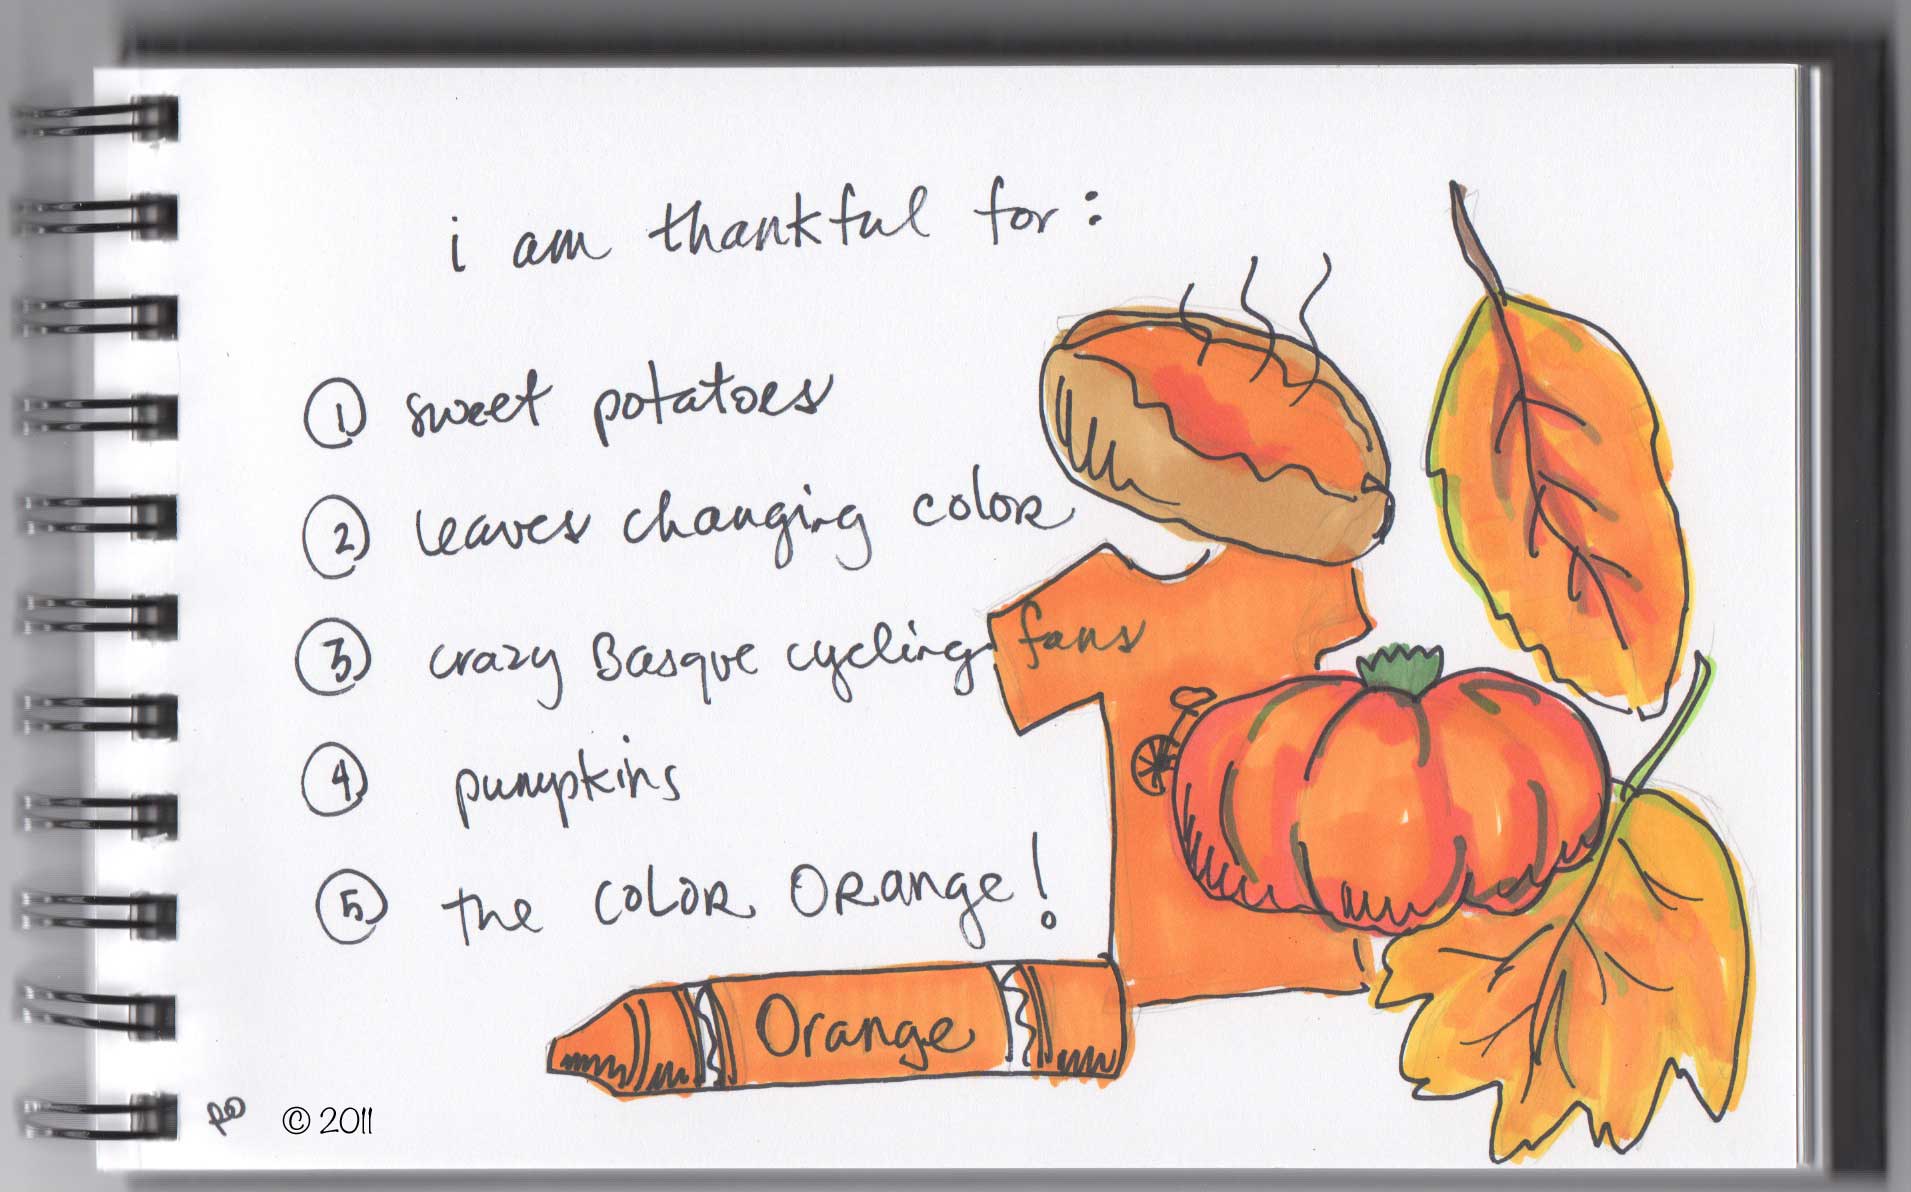 i am thankful for:
1 sweet potatoes
2 leaves changing color
3 crazy Basque cycling fans
4 pumpkins
5 the COLOR ORange!
Orange
© 2011